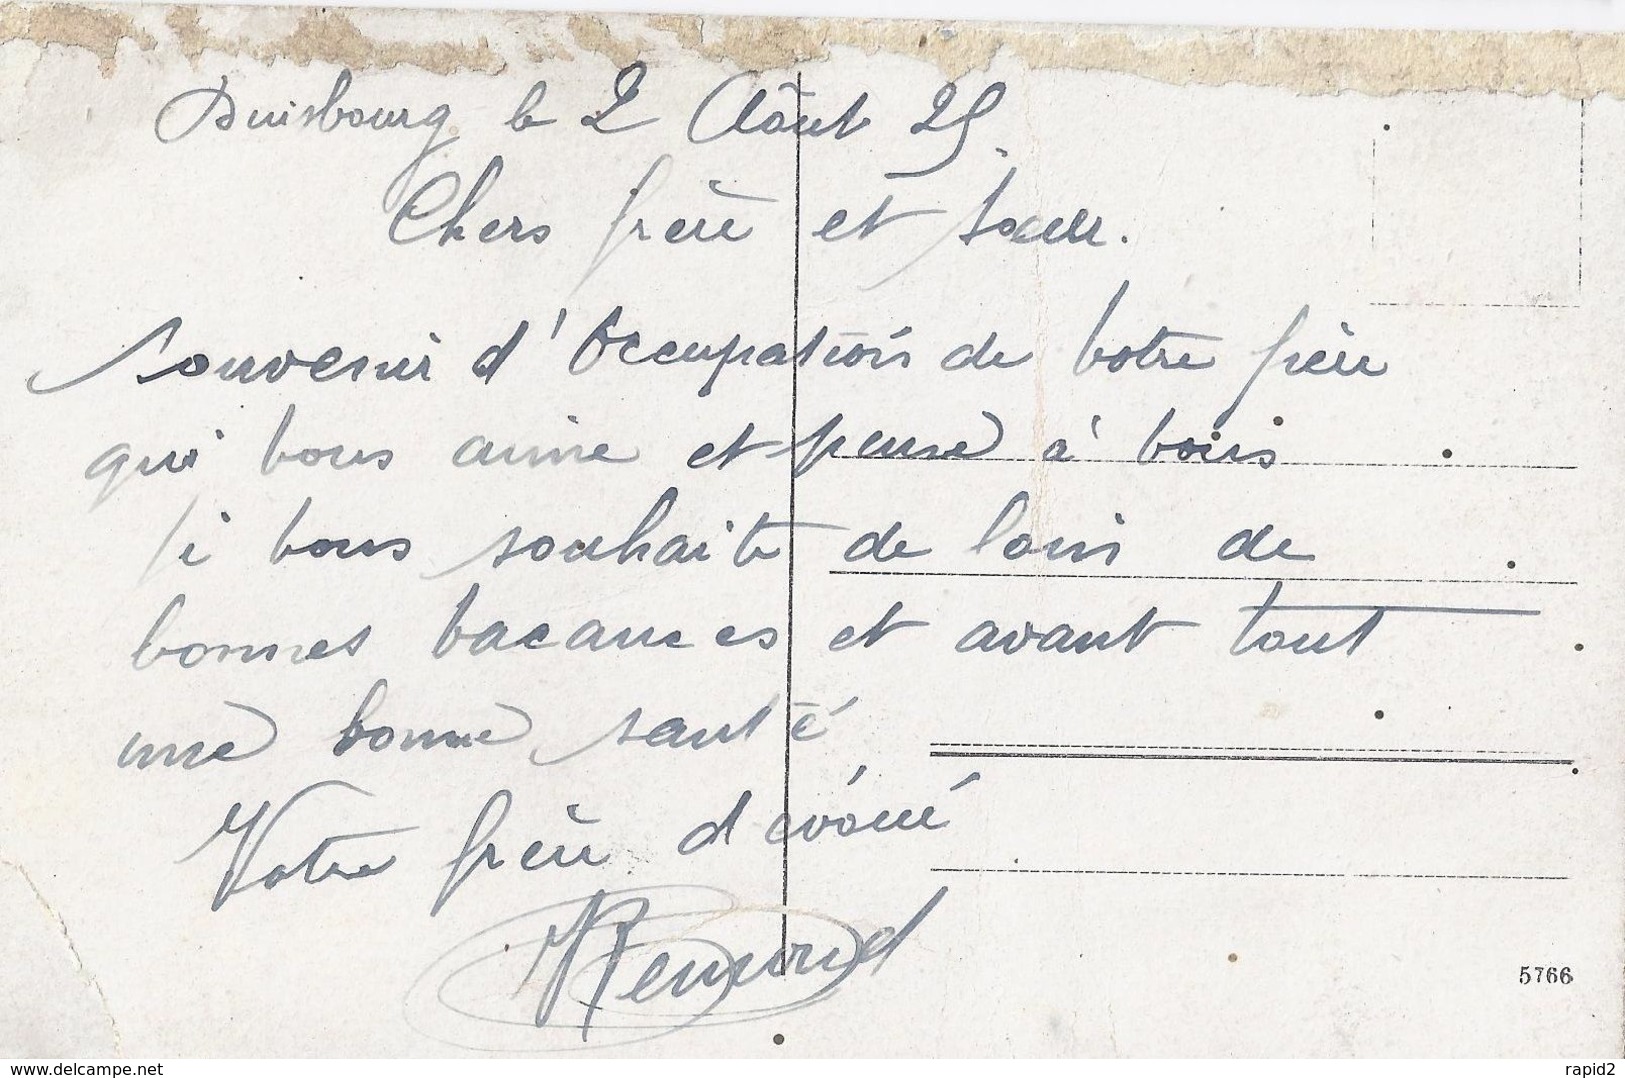 Duisbourg le 2 Août 25
Chers frère et soeur.
Souvenir d'Occupation de votre frère
qui vous aime et pense à vous
Je vous souhaite de loin de
bonnes vacances et avant tout
une bonne santé
Votre frère dévoué
5766
delcampe.net
rapid2